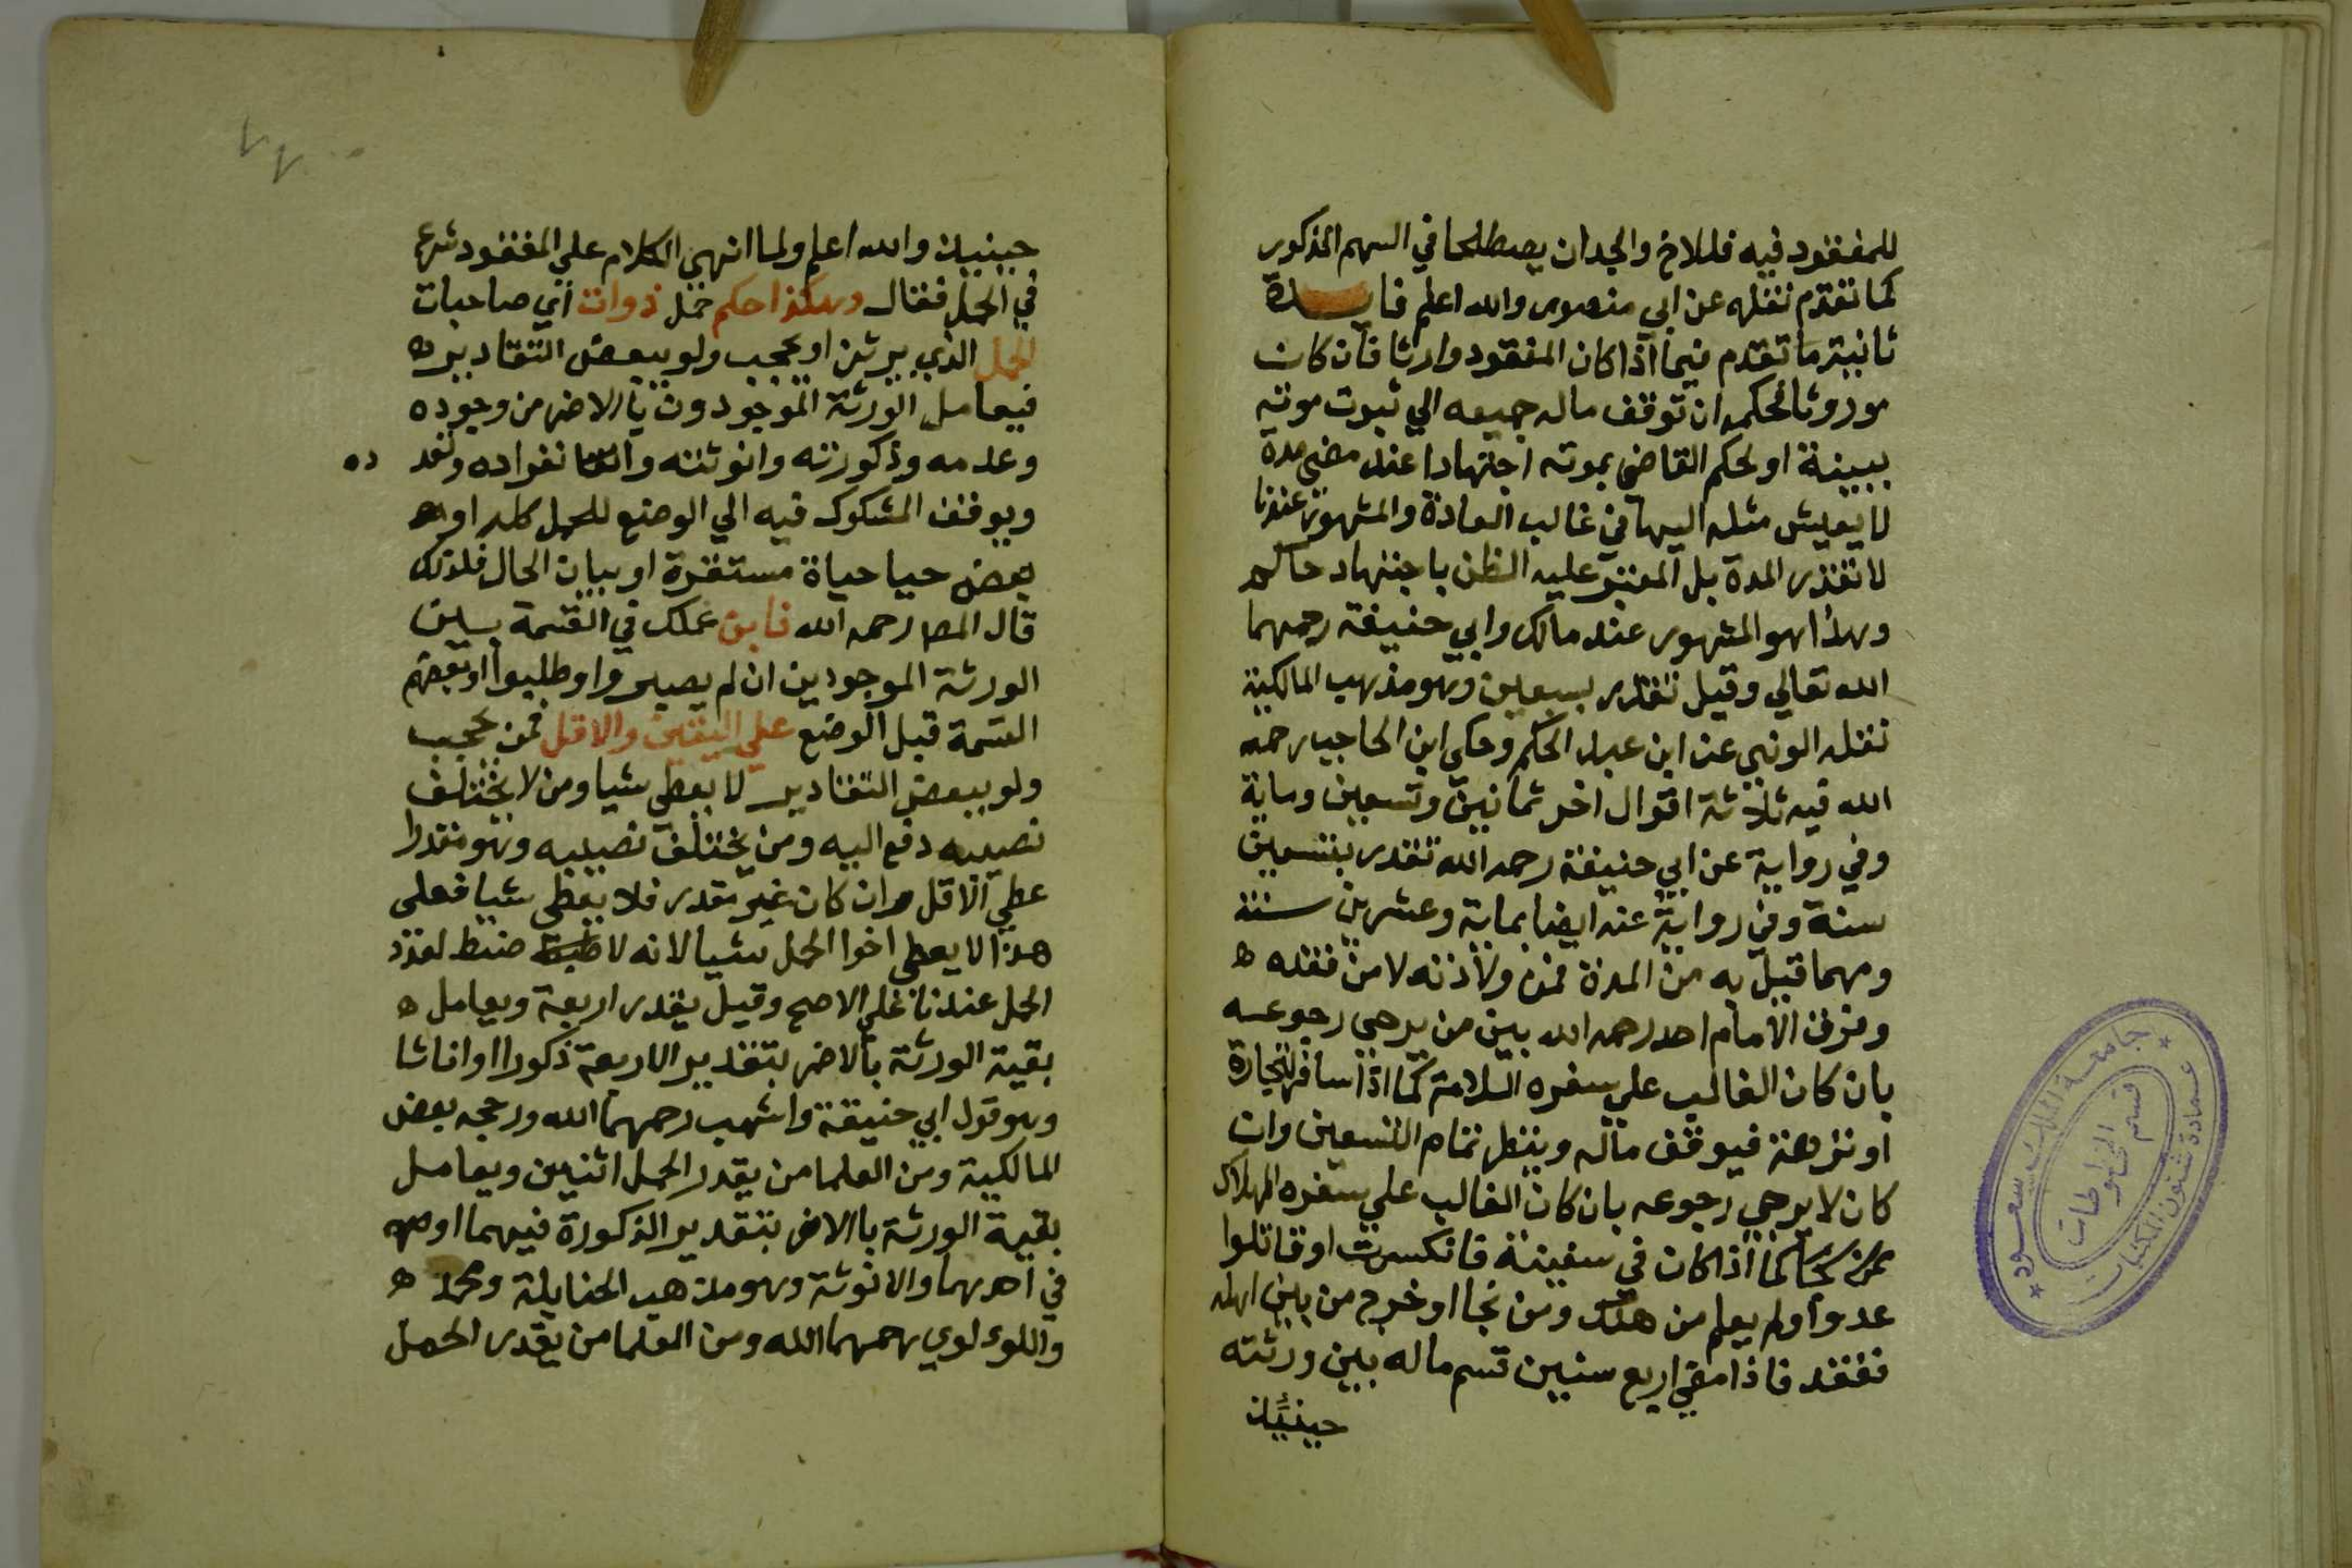 للمفقود فيه فللاخ والجدان يصطلحا في السهم المذكور
كما تقدم نقله عن ابي منصور والله اعلم فايدة
ثانية ما تقدم فيما اذا كان المفقود وارثا فان كان
موروثا فحكمه ان توقف ماله جميعه الي ثبوت موته
ببينة او يحكم القاضي بموته اجتهادا عند مضي مدة
لا يعيش مثله اليها في غالب العادة والمشهور عندنا
لا تقدر المدة بل المعتبر عليه الظن باجتهاد حاكم
وهذا هو المشهور عند مالك وابي حنيفة رحمهما
الله تعالي وقيل تقدر بسبعين وهو مذهب المالكية
نقله الوني عن ابن عبد الحكم وحكي ابن الحاجب رحمه
الله فيه ثلاثة اقوال اخر ثمانين وتسعين وماية
وفي رواية عن ابي حنيفة رحمه الله تقدر بتسعين
سنة وفي رواية عنه ايضا بماية وعشرين سنة
ومهما قيل به من المدة فمن ولادته لا من فقده ه
وفرق الامام احد رحمه الله بين من يرجي رجوعه
بان كان الغالب علي سفره السلامة كما اذا سافر لتجارة
او نزهة فيوقف ماله وينتظر تمام التسعين وان
كان لا يرجي رجوعه بان كان الغالب علي سفره الهلاك
كما اذا كان في سفينة فانكسرت او قاتلوا
عدوا ولم يعلم من هلك ومن نجا او خرج من بين اهله
ففقد فاذا مضي اربع سنين قسم ماله بين ورثته
حينئذ
حينيذ والله اعلم ولما انهي الكلام علي المفقود شرع
في الحمل فقال وهكذا حكم حمل ذوات اي صاحبات
الحمل الذي يرث او يحجب ولو ببعض التقادير ه
فيعامل الورثة الموجودون بالاضر من وجوده
وعدمه وذكورته وانوثته وانفراده وتعد
ده
ويوقف المشكوك فيه الي الوضع للحمل كله او
بعض حيا حياة مستقرة او بيان الحال فلذلك
قال المص رحمه الله فابن عملك في القسمة بين
الورثة الموجودين ان لم يصبروا وطلبوا او بعضهم
القسمة قبل الوضع علي اليقين والاقل فمن يحجب
ولو ببعض التقادير لا يعطي شيا ومن لا يختلف
نصيبه دفع اليه ومن يختلف نصيبه وهو مقدر ا
عطي الاقل وان كان غير مقدر فلا يعطي شيا فعلي
هذا لا يعطي اخوا الحمل شيا لانه لا ضبط لعدد
الحمل عندنا علي الاصح وقيل يقدر اربعة ويعامل ه
بقية الورثة بالاضر بتقدير الاربعة ذكورا او اناثا
وهو قول ابي حنيفة واشهب رحمهما الله ورجحه بعض
المالكية ومن العلما من يقدر الحمل اثنين ويعامل
بقية الورثة باالاضر بتقدير الذكورة فيهما او
في احدهما والانوثة وهو مذهب الحنابلة ومحمد ه
واللوءلوي رحمهما الله ومن العلما من يقدر الحمل
جامعة الملك سعود
عمادة شئون المكتبات
قسم المخطوطات